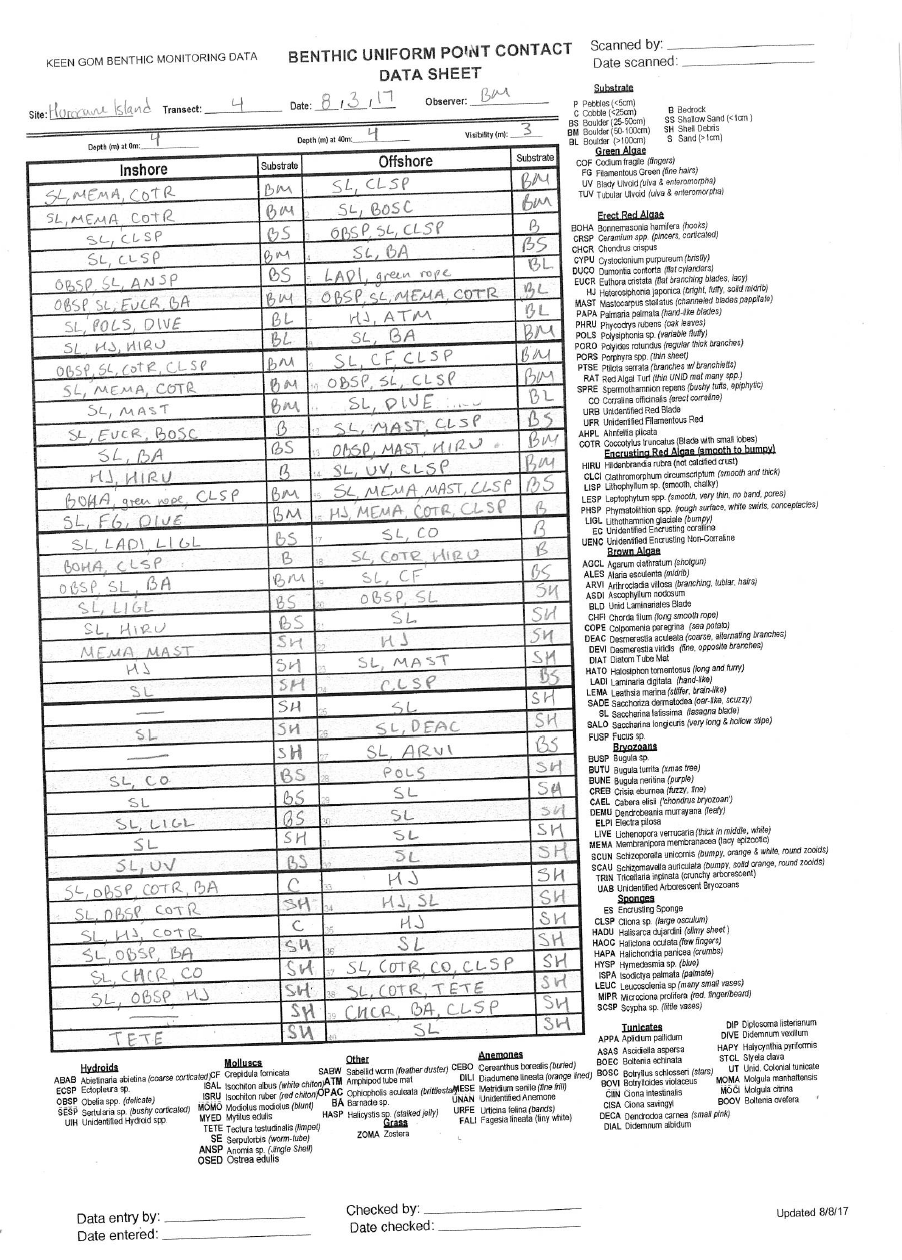 KEEN GOM BENTHIC MONITORING DATA
BENTHIC UNIFORM POINT CONTACT
DATA SHEET
Scanned by:
Date scanned:
Site: Hurricane Island Transect: 4 Date: 8, 3, 17 Observer: BM
Depth (m) at 0m: 4 Depth (m) at 40m: 4 Visibility (m): 3
Inshore Substrate Offshore Substrate
SL, MEMA, COTR BM SL, CLSP BM
SL, MEMA, COTR BM SL, BOSC BM
SL, CLSP BS OBSP, SL, CLSP B
SL, CLSP BM SL, BA BS
OBSP, SL, ANSP BS LADI, green rope BL
OBSP SL, EUCR, BA BM OBSP, SL, MEMA, COTR BL
SL, POLS, DIVE BL HJ, ATM BL
SL, HJ, HIRU BL SL, BA BM
OBSP, SL, COTR, CLSP BM SL, CF, CLSP BM
SL, MEMA, COTR BM OBSP, SL, CLSP BM
SL, MAST BM SL, DIVE BL
SL, EUCR, BOSC B SL, MAST, CLSP BS
SL, BA BS OBSP, MAST, HIRU BM
HJ, HIRU B SL, UV, CLSP BM
BOHA, green rope, CLSP BM SL, MEMA, MAST, CLSP BS
SL, FG, DIVE BM HJ, MEMA, COTR, CLSP B
SL, LADI, LIGL BS SL, CO B
BOHA, CLSP B SL, COTR, HIRU B
OBSP, SL, BA BM SL, CF BS
SL, LIGL BS OBSP, SL SH
SL, HIRU BS SL SH
MEMA, MAST SH HJ SH
HJ SH SL, MAST SH
SL SH CLSP BS
— SH SL SH
SL SH SL, DEAC SH
— SH SL, ARVI BS
SL, CO BS POLS SH
SL BS SL SH
SL, LIGL BS SL SH
SL SH SL SH
SL, UV BS SL SH
SL, OBSP, COTR, BA C HJ SH
SL, OBSP, COTR SH HJ, SL SH
SL, HJ, COTR C HJ SH
SL, OBSP, BA SH SL SH
SL, CHCR, CO SH SL, COTR, CO, CLSP SH
SL, OBSP, HJ SH SL, COTR, TETE SH
— SH CHCR, BA, CLSP SH
TETE SH SL SH
Substrate
P Pebbles (<5cm)
C Cobble (<25cm) B Bedrock
BS Boulder (25-50cm) SS Shallow Sand (<1cm )
BM Boulder (50-100cm) SH Shell Debris
BL Boulder (>100cm) S Sand (>1cm)
Green Algae
COF Codium fragile (fingers)
FG Filamentous Green (fine hairs)
UV Blady Ulvoid (ulva & enteromorpha)
TUV Tubular Ulvoid (ulva & enteromorpha)
Erect Red Algae
BOHA Bonnemaisonia hamifera (hooks)
CRSP Ceramium spp. (pincers, corticated)
CHCR Chondrus crispus
CYPU Cystoclonium purpureum (bristly)
DUCO Dumontia contorta (flat cylanders)
EUCR Euthora cristata (flat branching blades, lacy)
HJ Heterosiphonia japonica (bright, fuffy, solid midrib)
MAST Mastocarpus stellatus (channeled blades pappilate)
PAPA Palmaria palmata (hand-like blades)
PHRU Phycodrys rubens (oak leaves)
POLS Polysiphonia sp. (variable fluffy)
PORO Polyides rotundus (regular thick branches)
PORS Porphyra spp. (thin sheet)
PTSE Ptilota serrata (branches w/ branchlets)
RAT Red Algal Turf (thin UNID mat many spp.)
SPRE Spermothamnion repens (bushy tufts, epiphytic)
CO Corallina officinalis (erect corraline)
URB Unidentified Red Blade
UFR Unidentified Filamentous Red
AHPL Ahnfeltia plicata
COTR Coccotylus truncatus (Blade with small lobes)
Encrusting Red Algae (smooth to bumpy)
HIRU Hildenbrandia rubra (not calcified crust)
CLCI Clathromorphum circumscriptum (smooth and thick)
LISP Lithophyllum sp. (smooth, chalky)
LESP Leptophytum spp. (smooth, very thin, no band, pores)
PHSP Phymatolithon spp. (rough surface, white swirls, conceptacles)
LIGL Lithothamnion glaciale (bumpy)
EC Unidentified Encrusting coralline
UENC Unidentified Encrusting Non-Corraline
Brown Algae
AGCL Agarum clathratum (shotgun)
ALES Alaria esculenta (midrib)
ARVI Arthrocladia villosa (branching, tubular, hairs)
ASDI Ascophyllum nodosum
BLD Unid Laminariales Blade
CHFI Chorda filum (long smooth rope)
COPE Colpomenia peregrina (sea potato)
DEAC Desmerestia aculeata (coarse, alternating branches)
DEVI Desmerestia viridis (fine, opposite branches)
DIAT Diatom Tube Mat
HATO Halosiphon tomentosus (long and furry)
LADI Laminaria digitata (hand-like)
LEMA Leathsia marina (stiffer, brain-like)
SADE Sacchoriza dermatodea (oar-like, scuzzy)
SL Saccharina latissima (lasagna blade)
SALO Saccharina longicuris (very long & hollow stipe)
FUSP Fucus sp.
Bryozoans
BUSP Bugula sp.
BUTU Bugula turrita (xmas tree)
BUNE Bugula neritina (purple)
CREB Crisia eburnea (fuzzy, fine)
CAEL Cabera elisii ('chondrus bryozoan')
DEMU Dendrobeania murrayana (leafy)
ELPI Electra pilosa
LIVE Lichenopora verrucaria (thick in middle, white)
MEMA Membranipora membranacea (lacy epizootic)
SCUN Schizoporella unicornis (bumpy, orange & white, round zooids)
SCAU Schizomavella auriculata (bumpy, solid orange, round zooids)
TRIN Tricellaria inpinata (crunchy arborescent)
UAB Unidentified Arborescent Bryozoans
Sponges
ES Encrusting Sponge
CLSP Cliona sp. (large osculum)
HADU Halisarca dujardini (slimy sheet )
HAOC Haliclona oculata (few fingers)
HAPA Halichondria panicea (crumbs)
HYSP Hymedesmia sp. (blue)
ISPA Isodictya palmata (palmate)
LEUC Leucosolenia sp (many small vases)
MIPR Microciona prolifera (red, finger/beard)
SCSP Scypha sp. (little vases)
Tunicates
APPA Aplidium pallidum
ASAS Ascidiella aspersa
BOEC Boltenia echinata
BOSC Botryllus schlosseri (stars)
BOVI Botrylloides violaceus
CIIN Ciona intestinalis
CISA Ciona savingyi
DECA Dendrodoa carnea (small pink)
DIAL Didemnum albidum
DIP Diplosoma listerianum
DIVE Didemnum vexillum
HAPY Halycynthia pyriformis
STCL Styela clava
UT Unid. Colonial tunicate
MOMA Molgula manhattensis
MOCI Molgula citrina
BOOV Boltenia ovefera
Hydroids
ABAB Abietinaria abietina (coarse corticated)
ECSP Ectopleura sp.
OBSP Obelia spp. (delicate)
SESP Sertularia sp. (bushy corticated)
UIH Unidentified Hydroid spp.
Molluscs
CF Crepidula fornicata
ISAL Isochiton albus (white chiton)
ISRU Isochiton ruber (red chiton)
MOMO Modiolus modiolus (blunt)
MYED Mytilus edulis
TETE Tectura testudinalis (limpet)
SE Serpulorbis (worm-tube)
ANSP Anomia sp. (Jingle Shell)
OSED Ostrea edulis
Other
SABW Sabellid worm (feather duster)
ATM Amphipod tube mat
OPAC Ophiopholis aculeata (brittlestar)
BA Barnacle sp.
HASP Haliclystis sp. (stalked jelly)
Grass
ZOMA Zostera
Anemones
CEBO Cereanthus borealis (buried)
DILI Diadumene lineata (orange lined)
MESE Metridium senile (fine frill)
UNAN Unidentified Anemone
URFE Urticina felina (bands)
FALI Fagesia lineata (tiny white)
Data entry by:
Date entered:
Checked by:
Date checked:
Updated 8/8/17